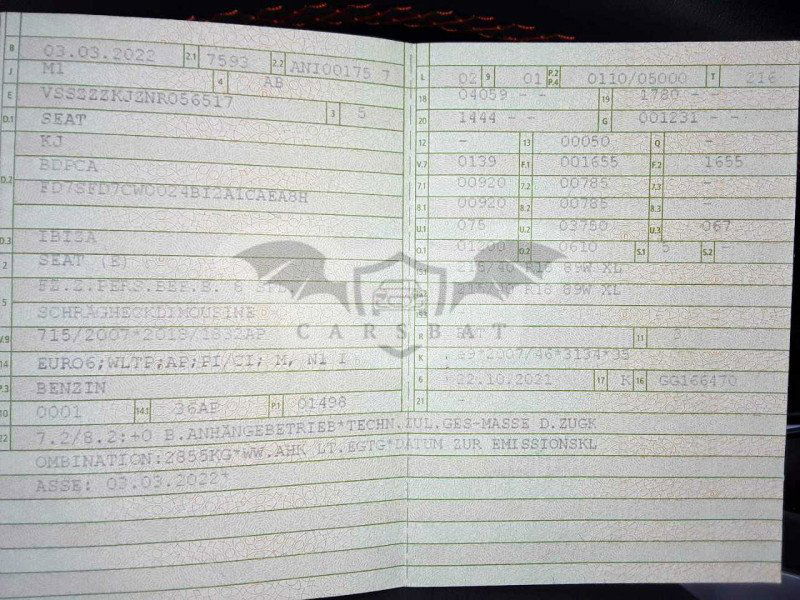 B 03.03.2022 2.1 7593 2.2 ANI00175 7
J M1 4 AB
E VSSZZZKJZNR056517 3 5
D.1 SEAT
KJ
D.2 BDPCA
FD7SFD7CW0024BI2A1CAEA8H
D.3 IBIZA
2 SEAT (E)
5 FZ.Z.PERS.BEF.B. 8
SCHRÄGHECKLIMOUSINE
V.9 715/2007*2018/1832AP
14 EURO6;WLTP;AP;PI/CI; M, N1 I
P.3 BENZIN
10 0001 14.1 36AP P.1 01498
22 7.2/8.2:+0 B.ANHÄNGEBETRIEB*TECHN.ZUL.GES-MASSE D.ZUGK
OMBINATION:2855KG*WW.AHK LT.EGTG*DATUM ZUR EMISSIONSKL
ASSE: 03.03.2022*
L 02 9 01 P.2 P.4 0110/05000 T 216
18 04059 - - 19 1780 - -
20 1444 - - G 001231 - -
12 - 13 00050 Q -
V.7 0139 F.1 001655 F.2 1655
7.1 00920 7.2 00785 7.3 -
8.1 00920 8.2 00785 8.3 -
U.1 075 U.2 03750 U.3 067
O.1 O.2 0610 S.1 5 S.2 -
R18 89W XL
R18 89W XL
CARSBAT
R 11
K 2007/46*3134*35
6 22.10.2021 17 K 16 GG166470
21 -